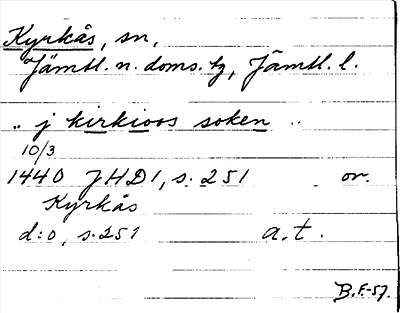 Kyrkås, sn,
Jämtl. n. doms. tg, Jämtl. l.
.. j kirkioos soken ..
10/3
1440 JHD1, s. 251 or.
Kyrkås
d:o, s. 251 a.t.
B.F-57.